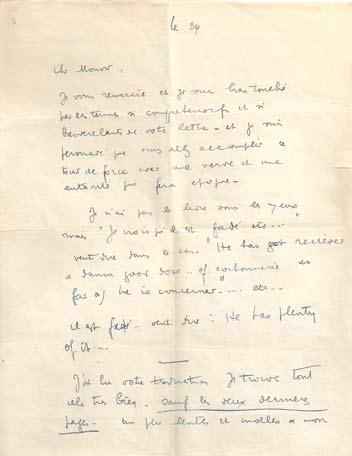 le 24
Cher Monsieur,
Je vous remercie et je suis bien touché
par les termes si compréhensifs et si
bienveillants de votre lettre - et je suis
persuadé que vous allez accomplir ce
tour de force avec une verve et une
autorité qui fera époque -
Je n'ai pas le livre sous les yeux
mais "Je crois qu'il est fadé etc...
veut dire dans ce cas. "He has got reciever
a damn good dose .. of couhonnerie as
far as he is concerner".... etc..
il est fadé.. veut dire : He has plenty
of it...
J'ai lu votre traduction Je trouve tout
cela très bien. sauf les deux dernières
pages. un peu lentes et molles à mon